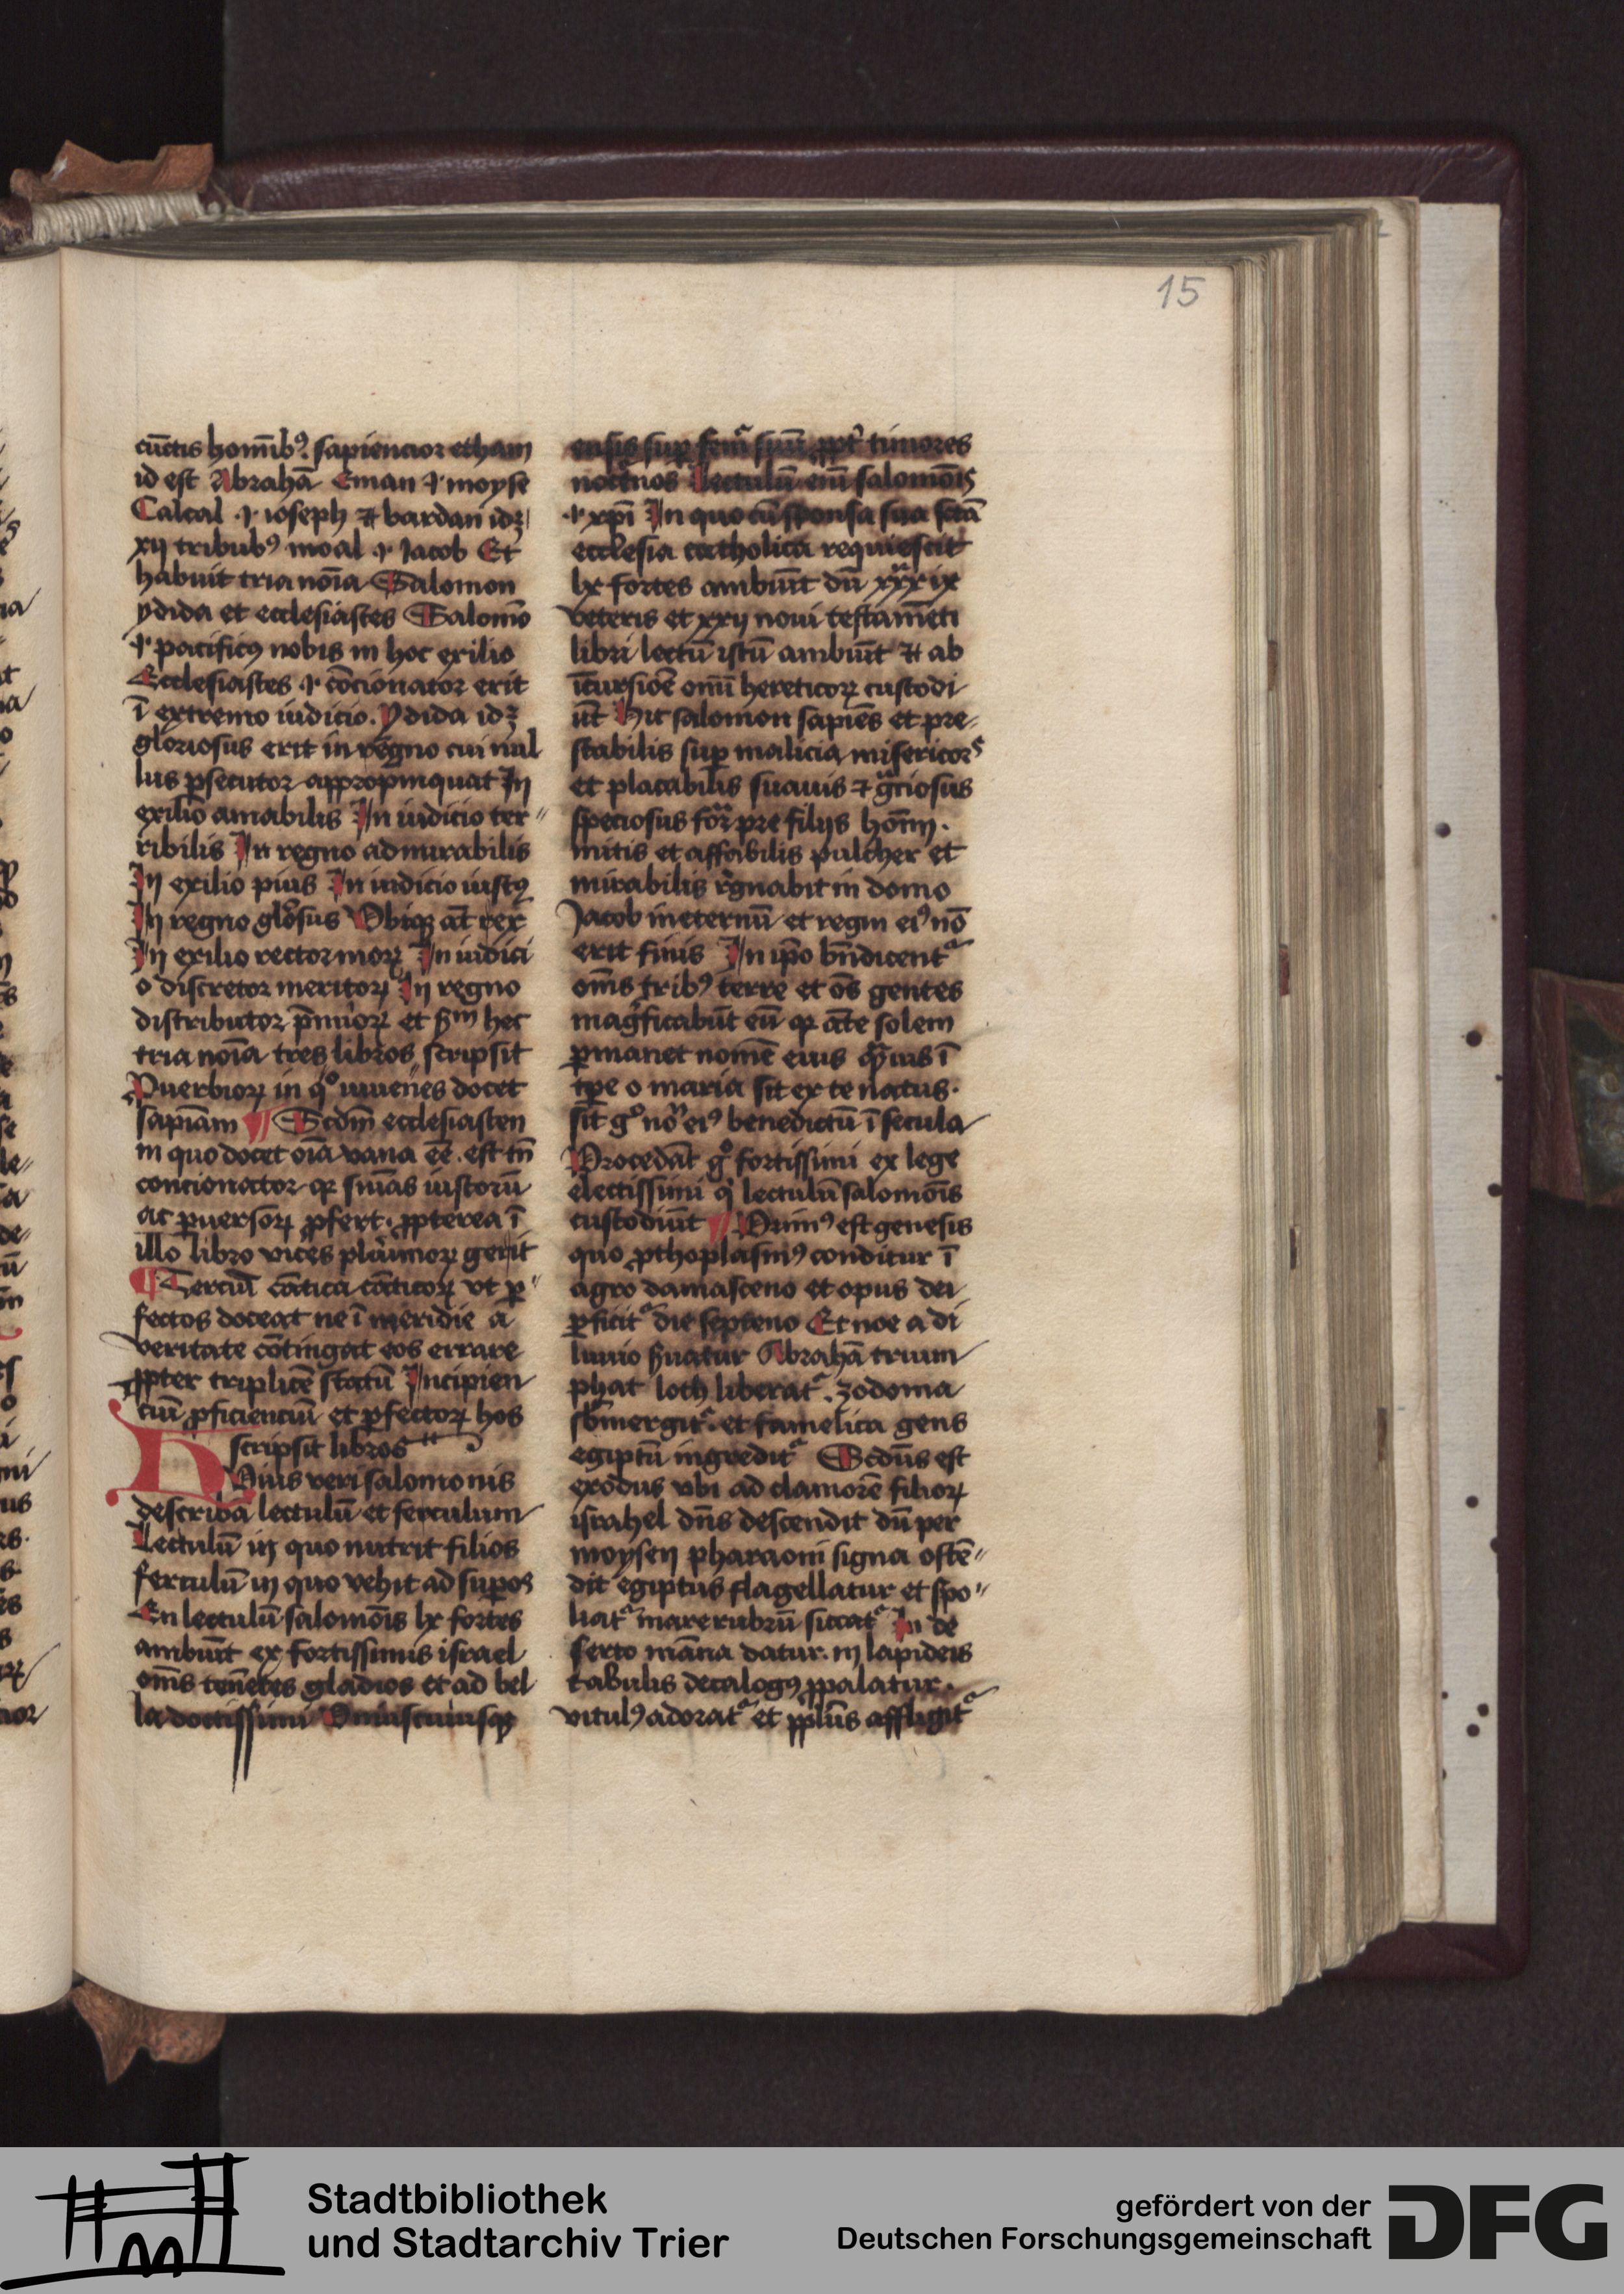 15
cūctis homībꝰ sapiencior etham
id est Abrahā Eman .i. moyse
Calcal .i. ioseph et bardan idꝫ
xij tribubꝰ moal .i. Jacob Et
habuit tria noīa Salomon
ydida et ecclesiastes Salomō
.i. pacificꝰ nobis in hoc exilio
Ecclesiastes .i. cōcionator erit
ī extremo iudicio. ydida idꝫ
gloriosus erit in regno cui nul
lus ꝑsecutor appropinquat In
exilio amabilis In iudicio ter〃
ribilis In regno admirabilis
In exilio pius In iudicio iustꝰ
In regno glosus Vbiqꝫ āt rex
In exilio rector moꝝ In iudici
o discretor meritoꝝ In regno
distributor p̄mioꝝ et sm hec
tria noīa tres libros scripsit
Puerbioꝝ in qͦ iuuenes docet
sapiām ¶ Scdm ecclesiasten
in quo docet oīa vana eē. est tn̄
concionator qꝛ sniās iustorū
ac ꝑuersoꝝ ꝓfert. ꝓpterea ī
illo libro vices plimoꝝ gerit
¶ Terciū cātica cāticoꝝ vt ꝑ〃
fectos doceat ne ī meridie a
veritate cōtingat eos errare
ꝓpter triplicē statū Incipien
ciū ꝓficienciū et ꝑfectoꝝ hos
scripsit libros
Huius veri salomonis
describā lectulū et ferculum
Lectulū in quo nutrit filios
ferculū in quo vehit ad suꝑos
En lectulū salomōis lx fortes
ambiūt ex fortissimis israel
om̄s tenētes gladios et ad bel
la doctissimi Uniuscuiusqꝫ
ensis suꝑ femͬ suū ꝓpt timores
nocͬnos Lectulū eni salomōis
.i. xp̄i In quo cū sponsa sua sctā
ecclesia catholica requiescit
lx fortes ambiūt dū xxxix
veteris et xxij noui testamēti
libri lectū istū ambiūt et ab
īcursiōe om̄ū hereticoꝝ custodi
ūt Hic salomon sapiēs et pre〃
stabilis suꝑ malicia misericors
et placabilis suauis et gͣciosus
speciosus forͣ pre filijs hom̄.
mitis et affabilis pulcher et
mirabilis rgnabit in domo
Jacob in eternū et regni eiꝰ nō
erit finis In ip̄o bn̄dicentͬ
om̄s tribꝰ terre et oēs gentes
magͥficabūt eū qꝛ āte solem
ꝑmanet nomē eius quis ī
tp̄e o maria sit ex te natus.
sit gͦ noͫ eiꝰ benedictū ī secula
Procedāt gͦ fortissimi ex lege
electissimi qͥ lectulū salomōis
custodiūt ¶ Primꝰ est genesis
quo ꝓthoplasmꝰ conditur ī
agro damasceno et opus dei
ꝑficitͬ die septeno Et noe a di
luuio sͬuatur Abrahā trium
phat loth liberatͬ. zodoma
sbmergitͬ. et famelica gens
egiptū ingreditͬ Scdūs est
exodus vbi ad clamorē filioꝝ
israhel dn̄s descendit dū per
moysen pharaoni signa ostē〃
dit egiptus flagellatur et spo〃
liatͬ mare rubrū siccatͬ In de
serto māna datur. in lapideis
tabulis decalogꝰ ꝓpalatur.
vitulꝰ adoratͬ et pplūs affligitͬ
Stadtbibliothek
und Stadtarchiv Trier
gefördert von der
Deutschen Forschungsgemeinschaft
DFG